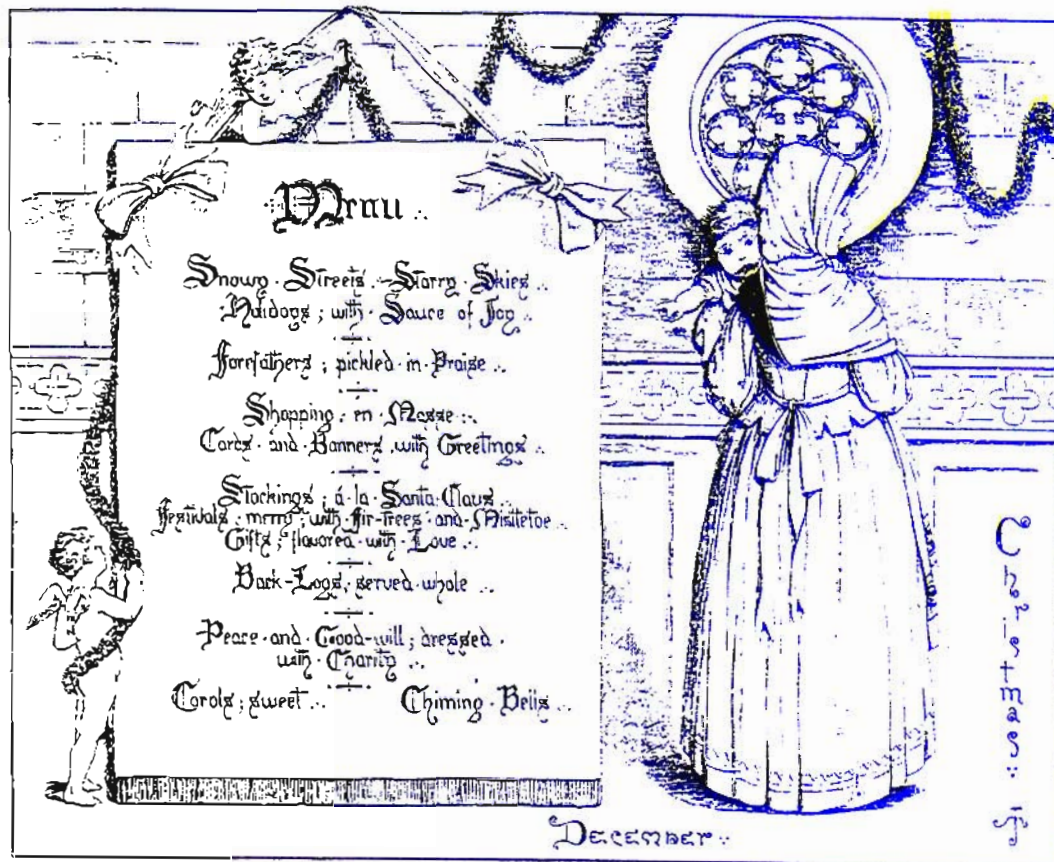 Menu
Snowy · Streets · Starry · Skies
Holidays ; with · Sauce of Joy
Forefathers ; pickled · in · Praise
Shopping · en · Masse
Cards · and · Banners , with Greetings
Stockings ; á · la · Santa · Claus
Festivals ; merry ; with · fir-trees · and · Mistletoe
Gifts ; flavored · with · Love
Back-Logs, served whole
Peace · and · Good-will ; dressed ·
with · Charity
Carols ; sweet Chiming · Bells
Christmas
December